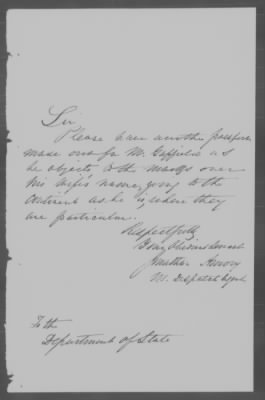 Sir
Please have another passport
made out for Mr. as
he objects to the marks over
his wife's name, going to the
Continent as he is, where they
are particular.
Respectfully
Your Obedient Servant
Jonathan Amory
U.S. Despatch Agent
To the
Department of State